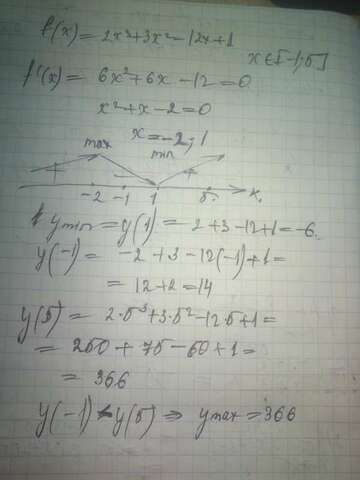 f(x) = 2x³+3x²-12x+1
x∈[-1;5]
f'(x) = 6x²+6x-12=0
x²+x-2=0
x=-2;1
max min
+ - +
-2 -1 1 5 x
ymin = y(1) = 2+3-12+1=-6
y(-1) = -2+3-12(-1)+1=
= 12+2=14
y(5) = 2·5³+3·5²-12·5+1=
= 250+75-60+1=
= 366
y(-1)<y(5) ⇒ ymax=366